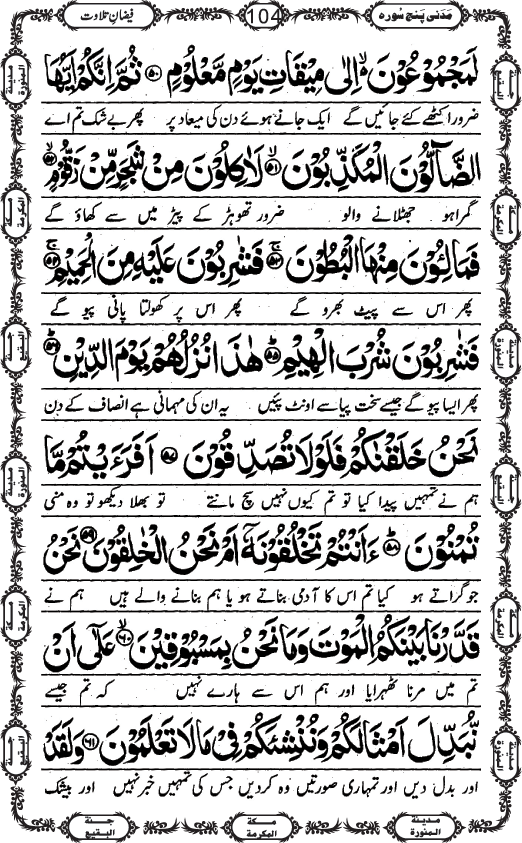 مَدَنی پنج سُورہ
104
فیضانِ تلاوت
لَمَجْمُوْعُوْنَ ۙ اِلٰى مِیْقَاتِ یَوْمٍ مَّعْلُوْمٍ ﴿۵۰﴾ ثُمَّ اِنَّكُمْ اَیُّهَا
ضرور اکٹھے کئے جائیں گے ایک جانے ہوئے دن کی میعاد پر پھر بے شک تم اے
الضَّآلُّوْنَ الْمُكَذِّبُوْنَ ﴿۵۱﴾ۙ لَاٰكِلُوْنَ مِنْ شَجَرٍ مِّنْ زَقُّوْمٍ ﴿۵۲﴾ۙ
گمراہو جھٹلانے والو ضرور تھوہڑ کے پیڑ میں سے کھاؤ گے
فَمَالِـُٔوْنَ مِنْهَا الْبُطُوْنَ ﴿۵۳﴾ۚ فَشٰرِبُوْنَ عَلَیْهِ مِنَ الْحَمِیْمِ ﴿۵۴﴾ۚ
پھر اس سے پیٹ بھرو گے پھر اس پر کھولتا پانی پیو گے
فَشٰرِبُوْنَ شُرْبَ الْهِیْمِ ﴿۵۵﴾ؕ هٰذَا نُزُلُهُمْ یَوْمَ الدِّیْنِ ﴿۵۶﴾ؕ
پھر ایسا پیو گے جیسے سخت پیاسے اونٹ پئیں یہ ان کی مہمانی ہے انصاف کے دن
نَحْنُ خَلَقْنٰكُمْ فَلَوْلَا تُصَدِّقُوْنَ ﴿۵۷﴾ اَفَرَءَیْتُمْ مَّا
ہم نے تمہیں پیدا کیا تو تم کیوں نہیں سچ مانتے تو بھلا دیکھو تو وہ منی
تُمْنُوْنَ ﴿۵۸﴾ؕ ءَاَنْتُمْ تَخْلُقُوْنَهٗۤ اَمْ نَحْنُ الْخٰلِقُوْنَ ﴿۵۹﴾ نَحْنُ
جو گراتے ہو کیا تم اس کا آدمی بناتے ہو یا ہم بنانے والے ہیں ہم نے
قَدَّرْنَا بَیْنَكُمُ الْمَوْتَ وَ مَا نَحْنُ بِمَسْبُوْقِیْنَ ﴿۶۰﴾ۙ عَلٰۤى اَنْ
تم میں مرنا ٹھہرایا اور ہم اس سے ہارے نہیں کہ تم جیسے
نُّبَدِّلَ اَمْثَالَكُمْ وَ نُنْشِئَكُمْ فِیْ مَا لَا تَعْلَمُوْنَ ﴿۶۱﴾ وَ لَقَدْ
اور بدل دیں اور تمہاری صورتیں وہ کردیں جس کی تمہیں خبر نہیں اور بیشک
مدينة المنورة
مكة المكرمة
جنة البقيع
مدينة المنورة
مكة المكرمة
جنة البقيع
جنة البقيع
مكة المكرمة
مدينة المنورة
جنة البقيع
مكة المكرمة
مدينة المنورة
جنة البقيع
مكة المكرمة
مدينة المنورة